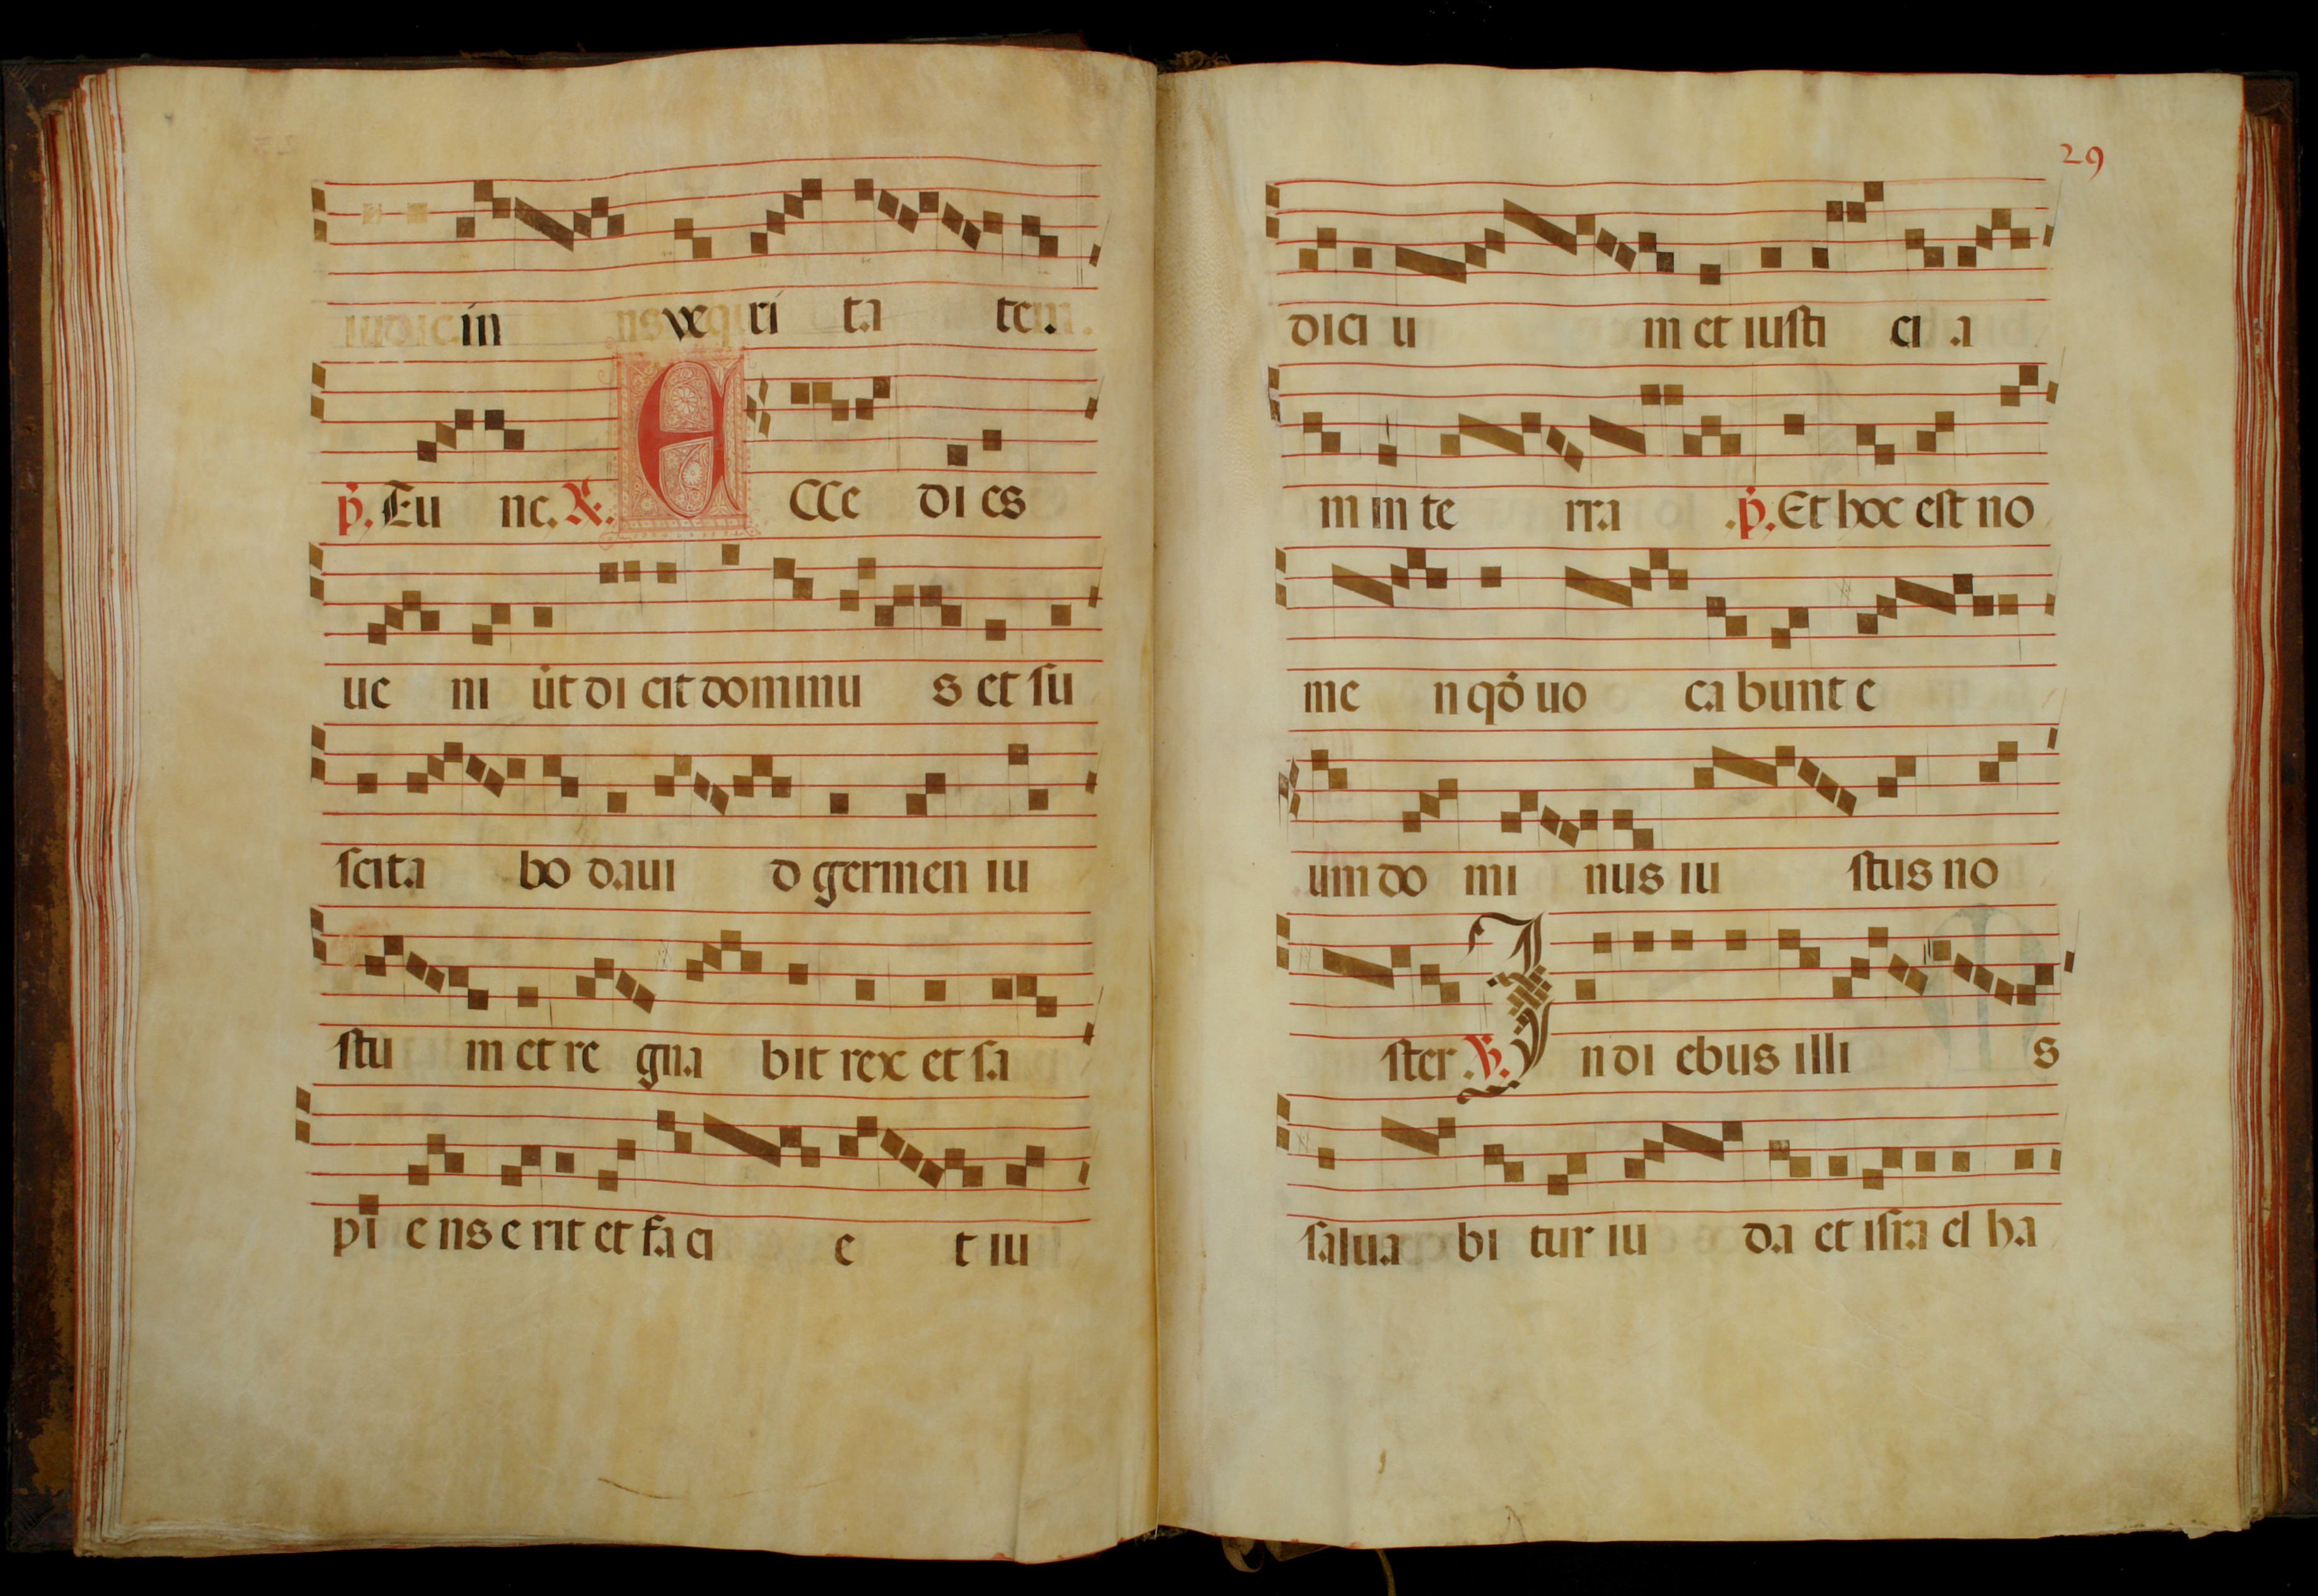 in ve ri ta tem.
p̃. Tu nc. R. E CCe di es
ue ni ũt di cit dominu s et ſu
ſcita bo daui d germen iu
ſtu m et re gna bit rex et ſa
pi e ns e rit et fa ci e t iu
29
dici u m et iuſti ci a
m in te rra .p̃. Et hoc eſt no
me n qd̃ uo ca bunt e
um do mi nus iu ſtus no
ſter .V. I n di ebus illi s
ſalua bi tur iu da et iſra el ha